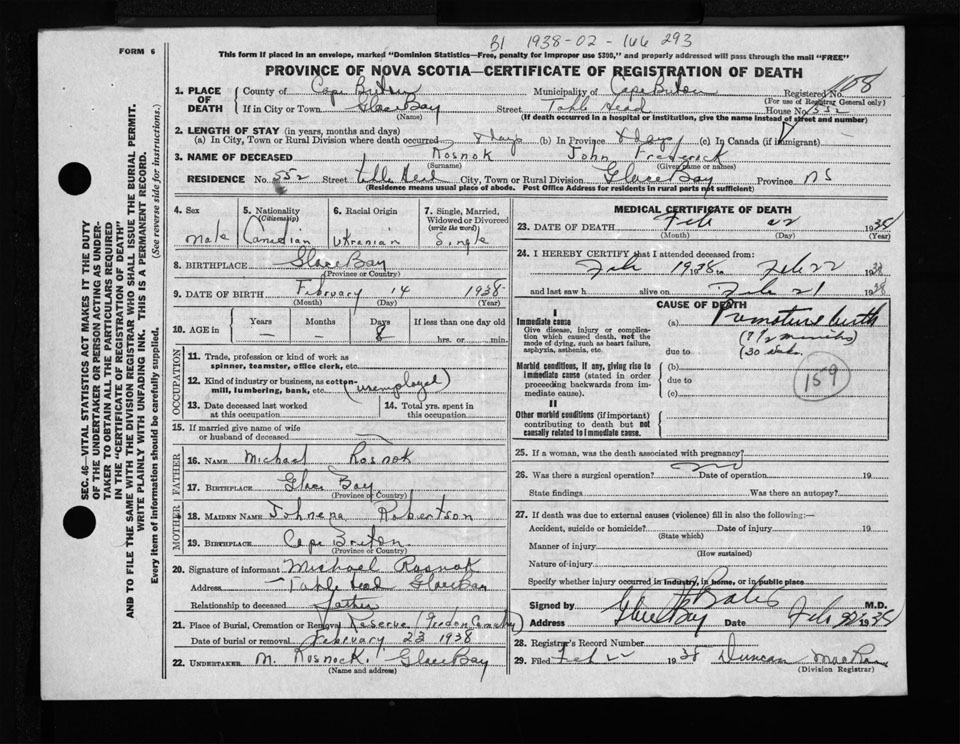 B1 1938-02-166 293
FORM 6
This form if placed in an envelope, marked "Dominion Statistics—Free, penalty for improper use $300," and properly addressed will pass through the mail "FREE"
PROVINCE OF NOVA SCOTIA—CERTIFICATE OF REGISTRATION OF DEATH
1. PLACE OF DEATH
County of Cape Breton Municipality of Cape Breton Registered No. 108
(For use of Registrar General only)
If in City or Town Glace Bay Street Table Head House No. 552
(Name) (If death occurred in a hospital or institution, give the name instead of street and number)
2. LENGTH OF STAY (in years, months and days)
(a) In City, Town or Rural Division where death occurred 8 days (b) In Province 8 days (c) In Canada (if immigrant)
3. NAME OF DECEASED Rosnok John Frederick
(Surname) (Given name or names)
RESIDENCE No. 552 Street Table Head City, Town or Rural Division Glace Bay Province NS
(Residence means usual place of abode. Post Office Address for residents in rural parts not sufficient)
4. Sex 5. Nationality (Citizenship) 6. Racial Origin 7. Single, Married, Widowed or Divorced (write the word)
Male Canadian Ukranian Single
8. BIRTHPLACE Glace Bay
(Province or Country)
9. DATE OF BIRTH February 14 1938
(Month) (Day) (Year)
10. AGE in Years Months Days If less than one day old
– – 8 hrs. or min.
OCCUPATION
11. Trade, profession or kind of work as spinner, teamster, office clerk, etc.
12. Kind of industry or business, as cotton-mill, lumbering, bank, etc. (unemployed)
13. Date deceased last worked at this occupation
14. Total yrs. spent in this occupation
15. If married give name of wife or husband of deceased
FATHER
16. NAME Michael Rosnok
17. BIRTHPLACE Glace Bay
(Province or Country)
MOTHER
18. MAIDEN NAME Johnena Robertson
19. BIRTHPLACE Cape Breton
(Province or Country)
20. Signature of informant Michael Rosnok
Address Table Head Glace Bay
Relationship to deceased father
21. Place of Burial, Cremation or Removal Reserve
Date of burial or removal February 23 1938
22. UNDERTAKER M. Rosnock. Glace Bay
(Name and address)
MEDICAL CERTIFICATE OF DEATH
23. DATE OF DEATH Feb 22 1938
(Month) (Day) (Year)
24. I HEREBY CERTIFY that I attended deceased from:
Feb 1938 to Feb 22 1938
and last saw h alive on Feb 21 1938
CAUSE OF DEATH
I
Immediate cause
Give disease, injury or complication which caused death, not the mode of dying, such as heart failure, asphyxia, asthenia, etc.
(a) Premature birth
(7 1/2 months)
due to (30 wks.
Morbid conditions, if any, giving rise to immediate cause (stated in order proceeding backwards from immediate cause).
(b)
due to
(c)
159
II
Other morbid conditions (if important) contributing to death but not causally related to immediate cause.
25. If a woman, was the death associated with pregnancy?
26. Was there a surgical operation? no Date of operation 19
State findings Was there an autopsy?
27. If death was due to external causes (violence) fill in also the following:—
Accident, suicide or homicide? Date of injury 19
(State which)
Manner of injury
(How sustained)
Nature of injury
Specify whether injury occurred in industry, in home, or in public place
Signed by Bates M.D.
Address Glace Bay Date Feb 1938
28. Registrar's Record Number
29. Filed Feb 22 1938 Duncan
(Division Registrar)
SEC. 46—VITAL STATISTICS ACT MAKES IT THE DUTY
OF THE UNDERTAKER OR PERSON ACTING AS UNDER-
TAKER TO OBTAIN ALL THE PARTICULARS REQUIRED
IN THE "CERTIFICATE OF REGISTRATION OF DEATH"
AND TO FILE THE SAME WITH THE DIVISION REGISTRAR WHO SHALL ISSUE THE BURIAL PERMIT.
WRITE PLAINLY WITH UNFADING INK. THIS IS A PERMANENT RECORD.
Every item of information should be carefully supplied. (See reverse side for instructions.)